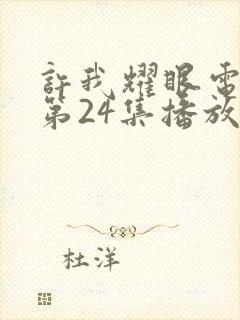 許我耀眼電
第24集播放
杜洋